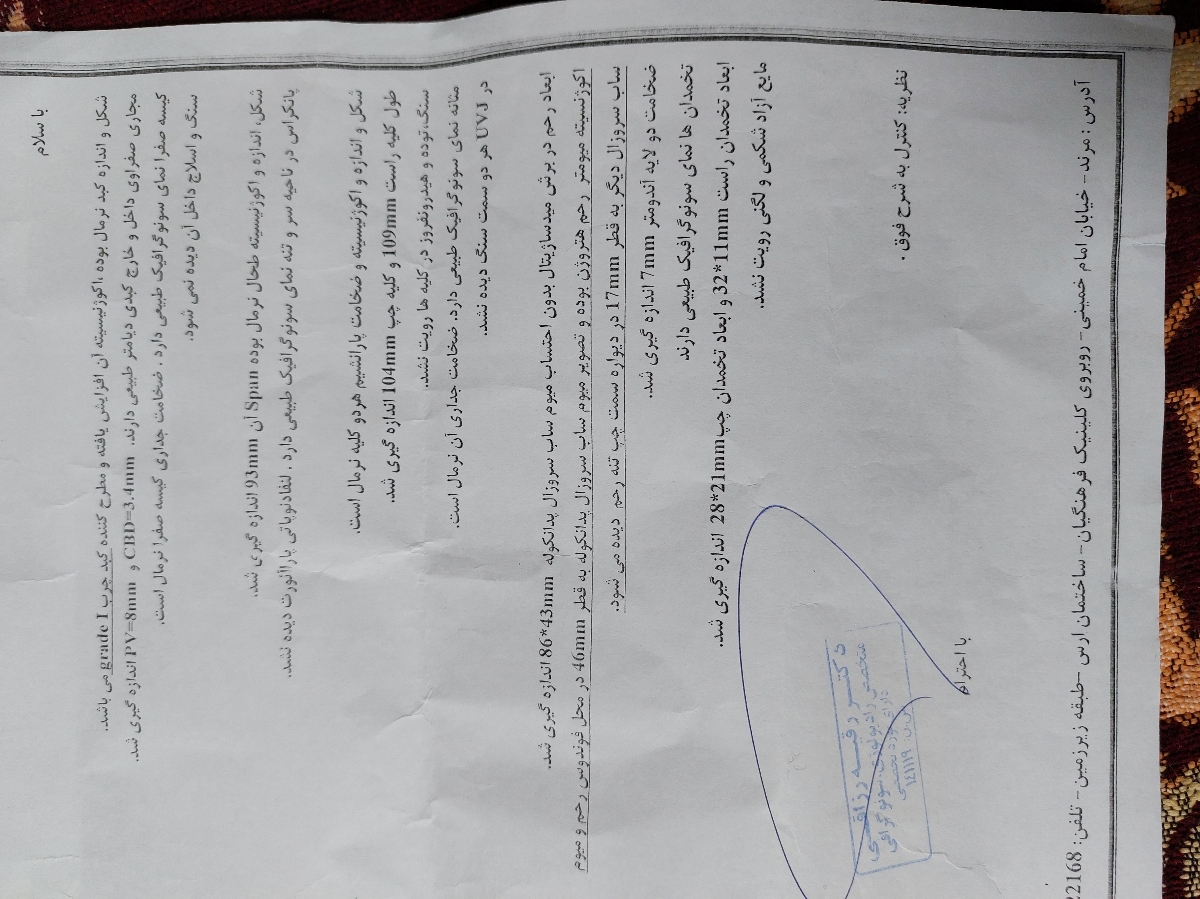 با سلام
شکل و اندازه کبد نرمال بوده ،اکوژنیسیته آن افزایش یافته و مطرح کننده کبد چرب grade I می باشد.
مجاری صفراوی داخل و خارج کبدی دیامتر طبیعی دارند. CBD=3.4mm و PV=8mm اندازه گیری شد.
کیسه صفرا نمای سونوگرافیک طبیعی دارد . ضخامت جداری کیسه صفرا نرمال است.
سنگ و اسلاج داخل آن دیده نمی شود.
شکل، اندازه و اکوژنیسیته طحال نرمال بوده Span آن 93mm اندازه گیری شد.
پانکراس در ناحیه سر و تنه نمای سونوگرافیک طبیعی دارد . لنفادنوپاتی پاراآئورت دیده نشد.
شکل و اندازه و اکوژنیسیته و ضخامت پارانشیم هردو کلیه نرمال است.
طول کلیه راست 109mm و کلیه چپ 104mm اندازه گیری شد.
سنگ،توده و هیدرونفروز در کلیه ها رویت نشد.
مثانه نمای سونوگرافیک طبیعی دارد. ضخامت جداری آن نرمال است.
در UVJ هر دو سمت سنگ دیده نشد.
ابعاد رحم در برش میدساژیتال بدون احتساب میوم ساب سروزال پدانکوله 86*43mm اندازه گیری شد.
اکوژنسیته میومتر رحم هتروژن بوده و تصویر میوم ساب سروزال پدانکوله به قطر 46mm در محل فوندوس رحم و میوم
ساب سروزال دیگر به قطر 17mm در دیواره سمت چپ تنه رحم دیده می شود.
ضخامت دو لایه آندومتر 7mm اندازه گیری شد.
تخمدان ها نمای سونوگرافیک طبیعی دارند
ابعاد تخمدان راست 32*11mm و ابعاد تخمدان چپ28*21mm اندازه گیری شد.
مایع آزاد شکمی و لگنی رویت نشد.
نظریه: کنترل به شرح فوق .
با احترام
دکتر رقیه رزاقی
متخصص رادیولوژی، سونوگرافی
دارای بورد تخصصی
۱۴۱۱۱۹
آدرس : مرند- خیابان امام خمینی- روبروی کلینیک فرهنگیان- ساختمان ارس -طبقه زیرزمین- تلفن: 22168